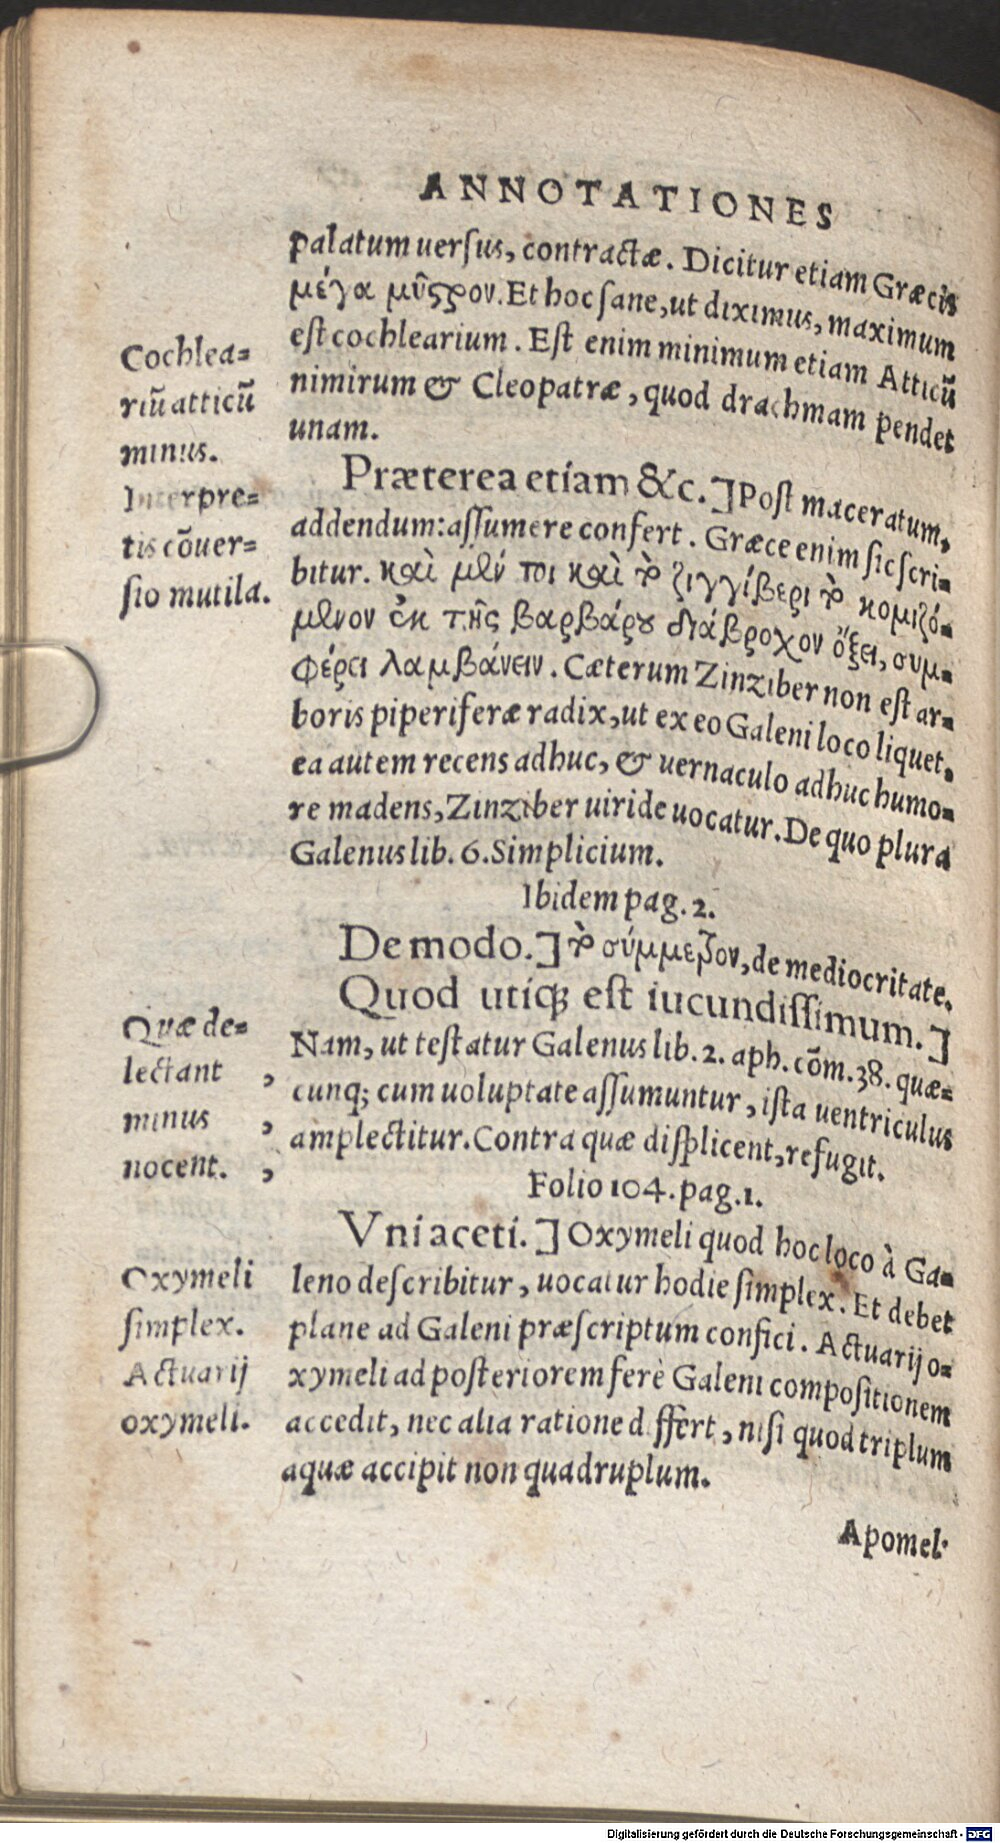 ANNOTATIONES
palatum uerſus, contractæ. Dicitur etiam Græcis
μέγα μῦςρον. Et hoc ſane, ut diximus, maximum
eſt cochlearium. Eſt enim minimum etiam Atticũ
nimirum & Cleopatræ, quod drachmam pendet
unam.
Cochlea=
riũ atticũ
minus.
Præterea etiam &c.] Poſt maceratum,
addendum: aſſumere confert. Græce enim ſic ſcri=
bitur. καὶ μὲν τοι καὶ τὸ ζιγγίβερι τὸ κομιζό=
μενον ἐκ τῆς βαρβάρου διάβροχον ὄξει, συμ=
φέρει λαμβάνειν. Cæterum Zinziber non eſt ar=
boris piperiferæ radix, ut ex eo Galeni loco liquet,
ea autem recens adhuc, & uernaculo adhuc humo=
re madens, Zinziber uiride uocatur. De quo plura
Galenus lib. 6. Simplicium.
Interpre=
tis cõuer=
ſio mutila.
Ibidem pag. 2.
De modo.] τὸ σύμμετρον, de mediocritate.
Quod utiq; eſt iucundiſſimum.]
Nam, ut teſtatur Galenus lib. 2. aph. cõm. 38. quæ=
cunq; cum uoluptate aſſumuntur, iſta uentriculus
amplectitur. Contra quæ diſplicent, refugit.
Quæ de=
lectant ,
minus ,
nocent. ,
Folio 104. pag. 1.
Vni aceti.] Oxymeli quod hoc loco à Ga=
leno deſcribitur, uocatur hodie ſimplex. Et debet
plane ad Galeni præſcriptum confici. Actuarij o=
xymeli ad poſteriorem ferè Galeni compoſitionem
accedit, nec alia ratione differt, niſi quod triplum
aquæ accipit non quadruplum.
Oxymeli
ſimplex.
Actuarij
oxymeli.
Apomel
Digitalisierung gefördert durch die Deutsche Forschungsgemeinschaft - DFG